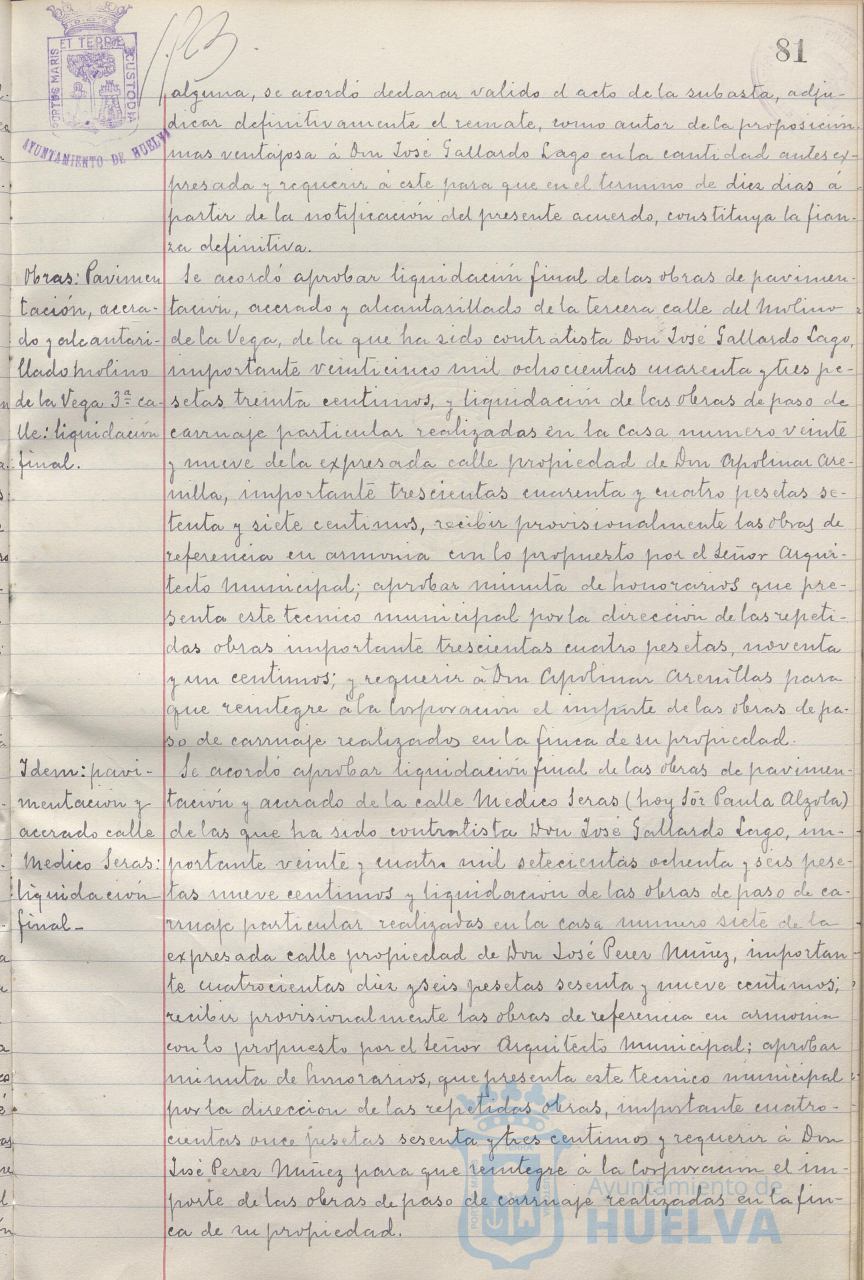 81
123
PORTUS MARIS ET TERRE CUSTODIA
AYUNTAMIENTO DE HUELVA
alguna, se acordó declarar valido el acto de la subasta, adju-
dicar definitivamente el remate, como autor de la proposición
mas ventajosa á Don José Gallardo Lago en la cantidad antes ex-
presada y requerir á este para que en el termino de diez dias á
partir de la notificación del presente acuerdo, constituya la fian-
za definitiva.
Obras: Pavimen
tación, acera-
do y alcantari-
llado molino
de la Vega 3ª ca-
lle: liquidación
final.
Se acordó aprobar liquidación final de las obras de pavimen-
tación, acerado y alcantarillado de la tercera calle del Molino
de la Vega, de la que ha sido contratista Don José Gallardo Lago,
importante veinticinco mil ochocientas cuarenta y tres pe-
setas treinta centimos, y liquidación de las obras de paso de
carruaje particular realizadas en la casa numero veinte
y nueve de la expresada calle propiedad de Don Apolinar Are-
nilla, importante trescientas cuarenta y cuatro pesetas se-
tenta y siete centimos, recibir provisionalmente las obras de
referencia en armonia con lo propuesto por el Señor Arqui-
tecto Municipal; aprobar minuta de honorarios que pre-
senta este tecnico municipal por la dirección de las repeti-
das obras importante trescientas cuatro pesetas, noventa
y un centimos; y requerir á Don Apolinar Arenillas para
que reintegre á la Corporación el importe de las obras de pa-
so de carruaje realizados en la finca de su propiedad.
Idem: pavi-
mentación y
acerado calle
Medico Seras:
liquidación
final-
Se acordó aprobar liquidación final de las obras de pavimen-
tación y acerado de la calle Medico Seras (hoy Sór Paula Alzola)
de las que ha sido contratista Don José Gallardo Lago, im-
portante veinte y cuatro mil setecientas ochenta y seis pese-
tas nueve centimos y liquidación de las obras de paso de ca-
rruaje particular realizadas en la casa numero siete de la
expresada calle propiedad de Don José Perez Nuñez, importan-
te cuatrocientas diez y seis pesetas sesenta y nueve centimos;
recibir provisionalmente las obras de referencia en armonia
con lo propuesto por el Señor Arquitecto Municipal; aprobar
minuta de honorarios, que presenta este tecnico municipal
por la dirección de las repetidas obras, importante cuatro-
cientas once pesetas sesenta y tres centimos y requerir á Don
José Perez Nuñez para que reintegre á la Corporación el im-
porte de las obras de paso de carruaje realizadas en la fin-
ca de su propiedad.
Ayuntamiento de
HUELVA